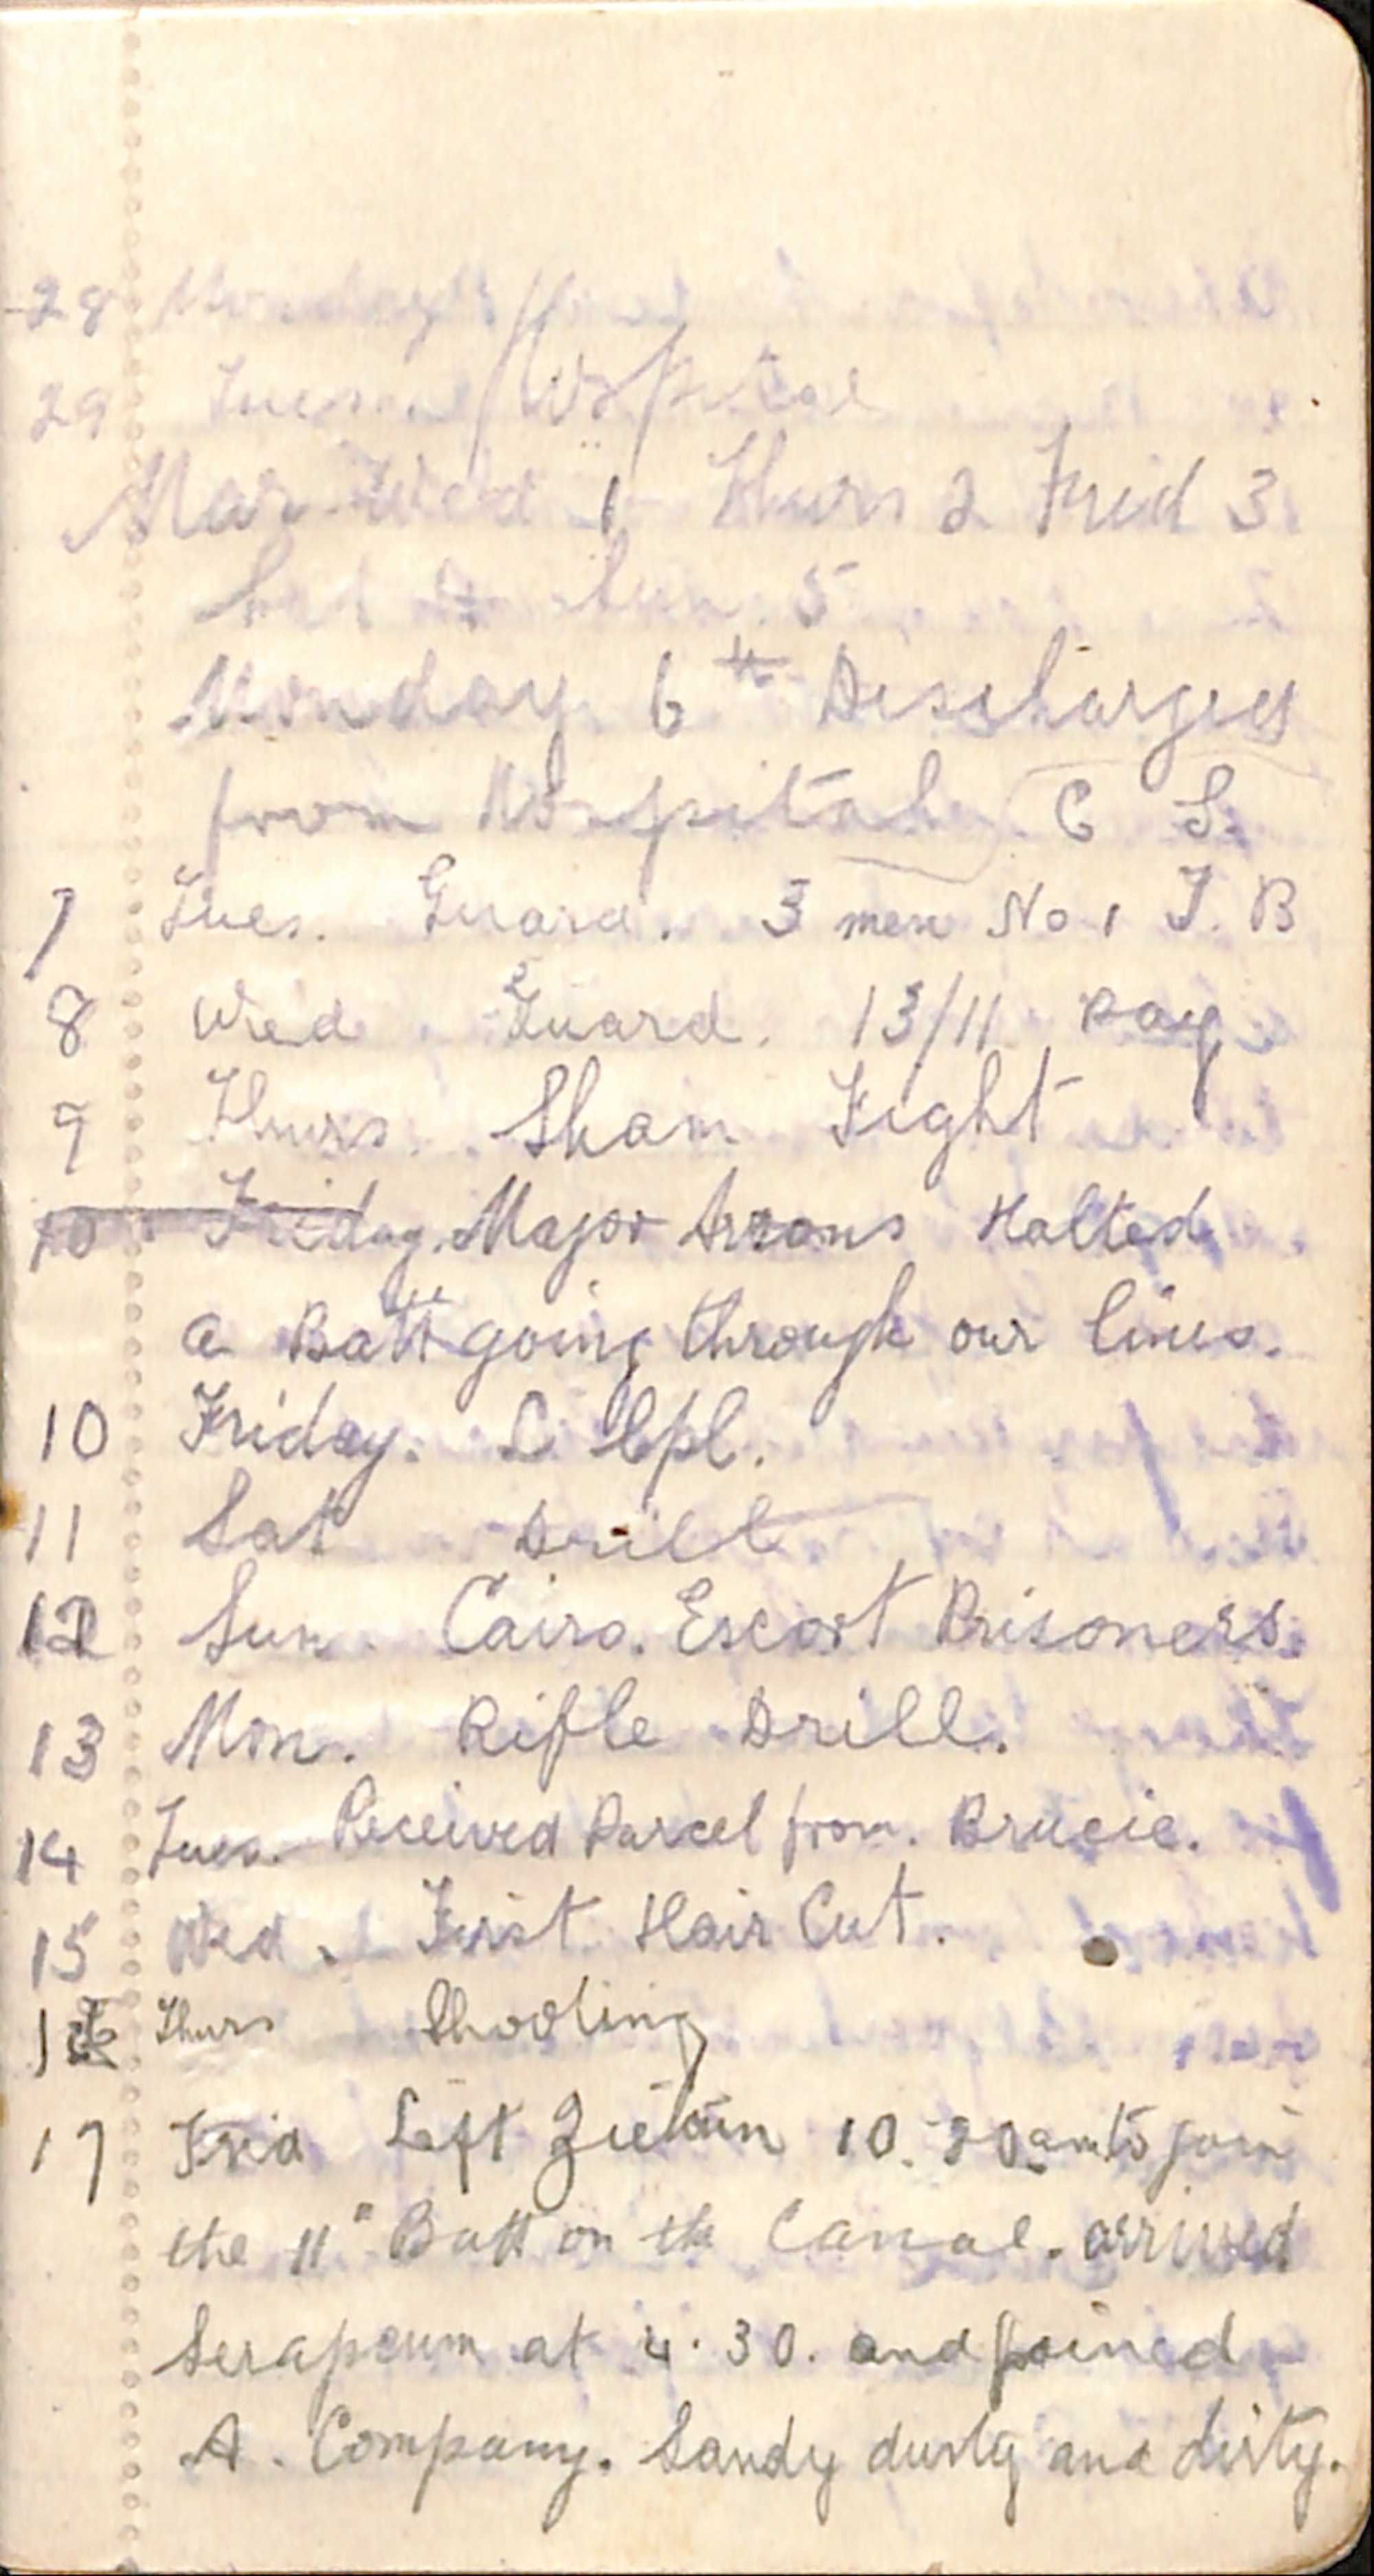 28 Monday Hospital
29 Tues.
Mar Wed 1 Thurs 2 Frid 3
Sat 4 Sun. 5
Monday 6th Discharged
from Hospital C S.
7 Tues. Guard. 3 men No 1 T. B
8 Wed Guard. 13/11 Pay
9 Thurs. Sham Fight
10 Friday. Major Arrans Halted
a Batt going through our lines.
10 Friday. L Cpl.
11 Sat Drill
12 Sun. Cairo. Escort Prisoners.
13 Mon. Rifle Drill.
14 Tues. Received Parcel from. Brucie.
15 Wed. First Hair Cut.
16 Thurs Shooting
17 Frid Left Zietoun 10.20 am to join
the 11" Batt on the Canal. arrived
Serapeum at 4.30. and joined
A. Company. Sandy dusty and dirty.